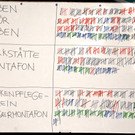 BEN
FÜR
BEN
KSTÄTTE
NTAFON
KENPFLEGE-
EIN
ERMONTAFON